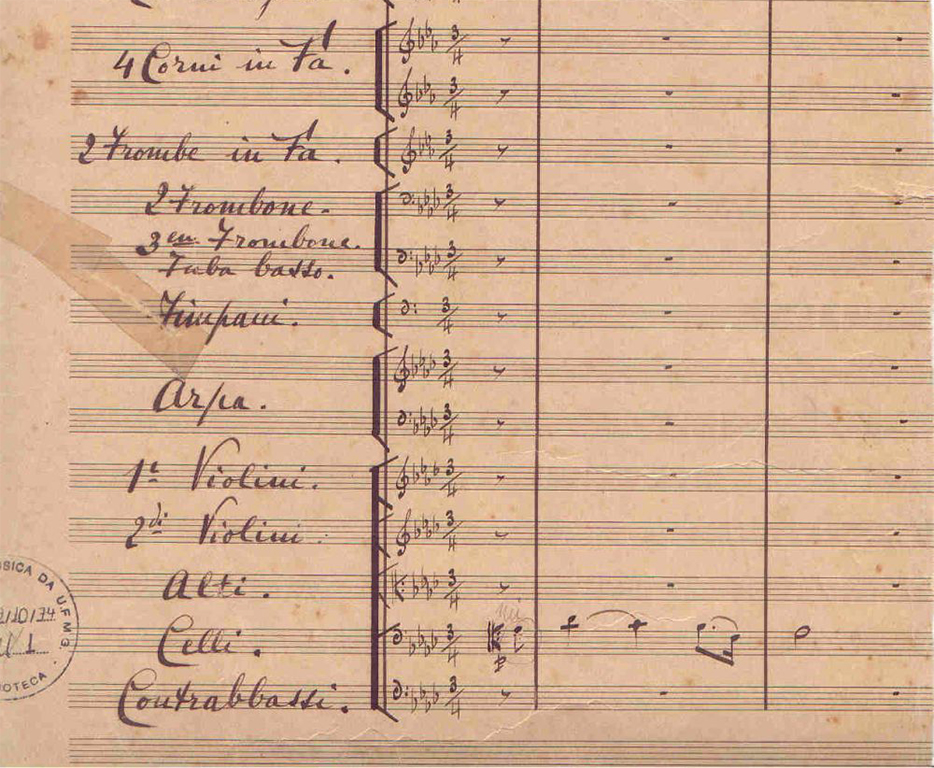 4 Corni in Fa.
2 Trombe in Fa.
2 Trombone.
3en Trombone.
Tuba basso.
Timpani.
Arpa.
1i Violini.
2di Violini.
Alti.
Celli.
Contrabbassi.
3
4
DA UFMG